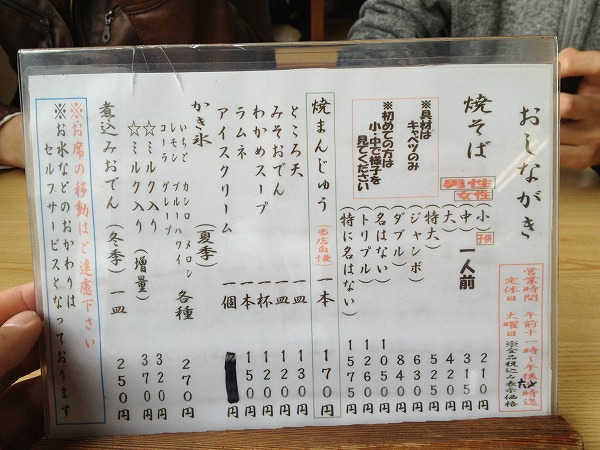 おしながき
営業時間 午前十一時〜午後六時迄
定休日 火曜日
※全品税込み表示価格
焼そば 男性 女性 一人前
※具材は
キャベツのみ
※初めての方は
小・中で様子を
見てください
小 子供 210円
(中) 315円
(大) 420円
(特大) 525円
(ジャンボ) 630円
(ダブル) 840円
(名はない) 1050円
(トリプル) 1265円
(特に名はない) 1575円
焼まんじゅう (当店自慢) 一本 170円
ところ天 一皿 130円
みそおでん 一皿 120円
わかめスープ 一杯 120円
ラムネ 一本 150円
アイスクリーム 一個 円
かき氷 (夏季)
いちご カンロ メロン
レモン ブルーハワイ
コーラ グレープ
各種 270円
☆ミルク入り 320円
☆ミルク入り (増量) 370円
煮込みおでん (冬季) 一皿 250円
※お席の移動はご遠慮下さい
※お水などのおかわりは
セルフサービスとなっております